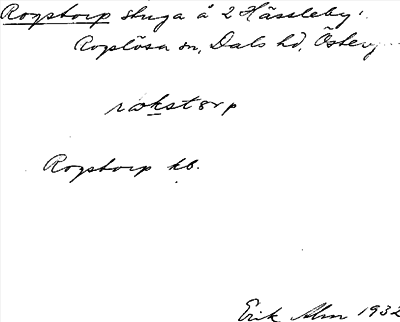 Rogstorp stuga å 2 Hässleby,
Rogslösa sn, Dals hd, Österg
rækstorp
Rogstorp kb.
Erik Alm 1932